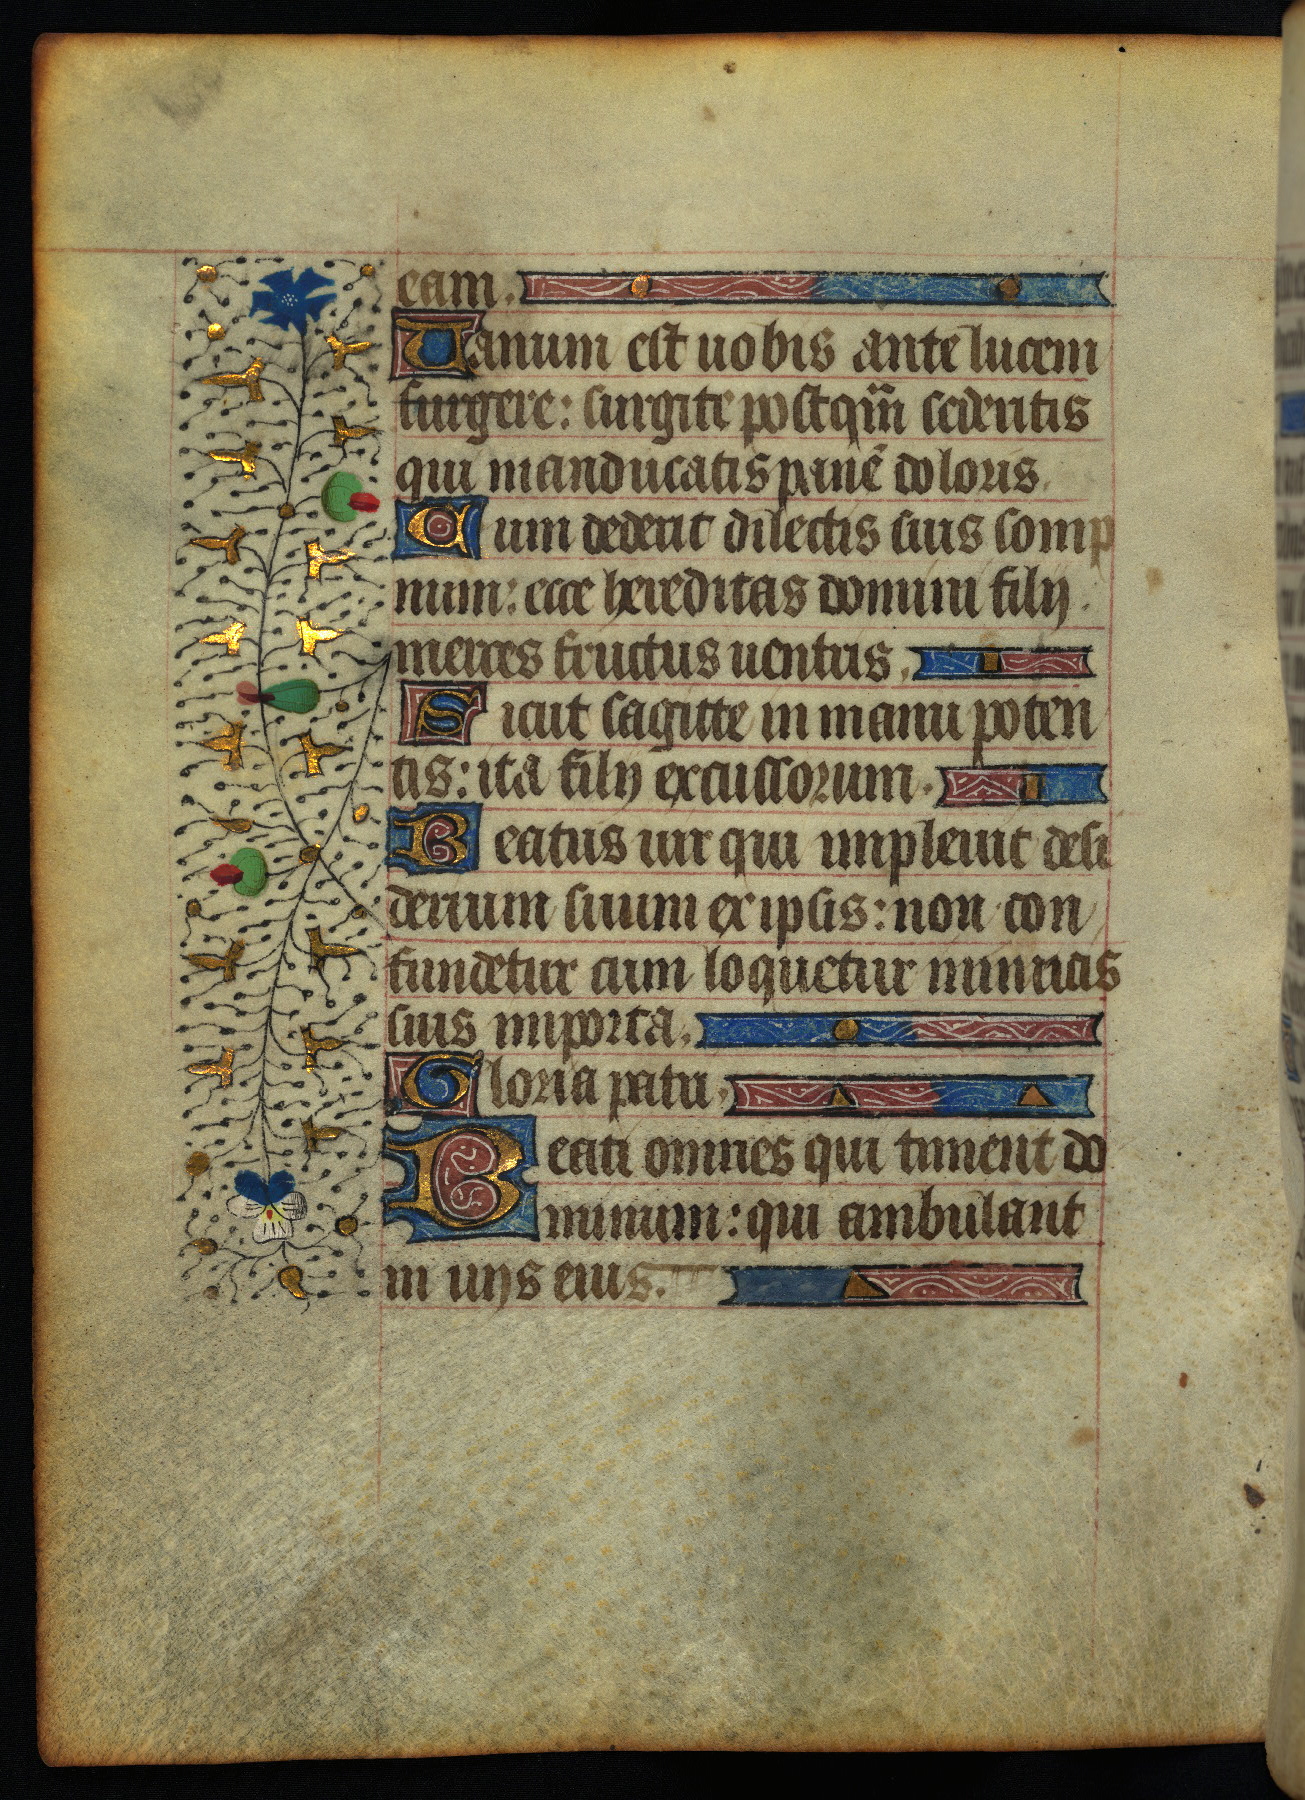 eam.
Uanum est uobis ante lucem
surgere: surgite postqm̄ sederitis
qui manducatis panē doloris.
Cum dederit dilectis suis somp
num: ecce hereditas domini filij
merces fructus uentris.
Sicut sagitte in manu poten
tis: ita filij excussorum.
Beatus uir qui impleuit desi
derium suum ex ipsis: non con
fundetur cum loquetur inimicis
suis in porta.
Gloria patri.
Beati omnes qui timent do
minum: qui ambulant
in uijs eius.